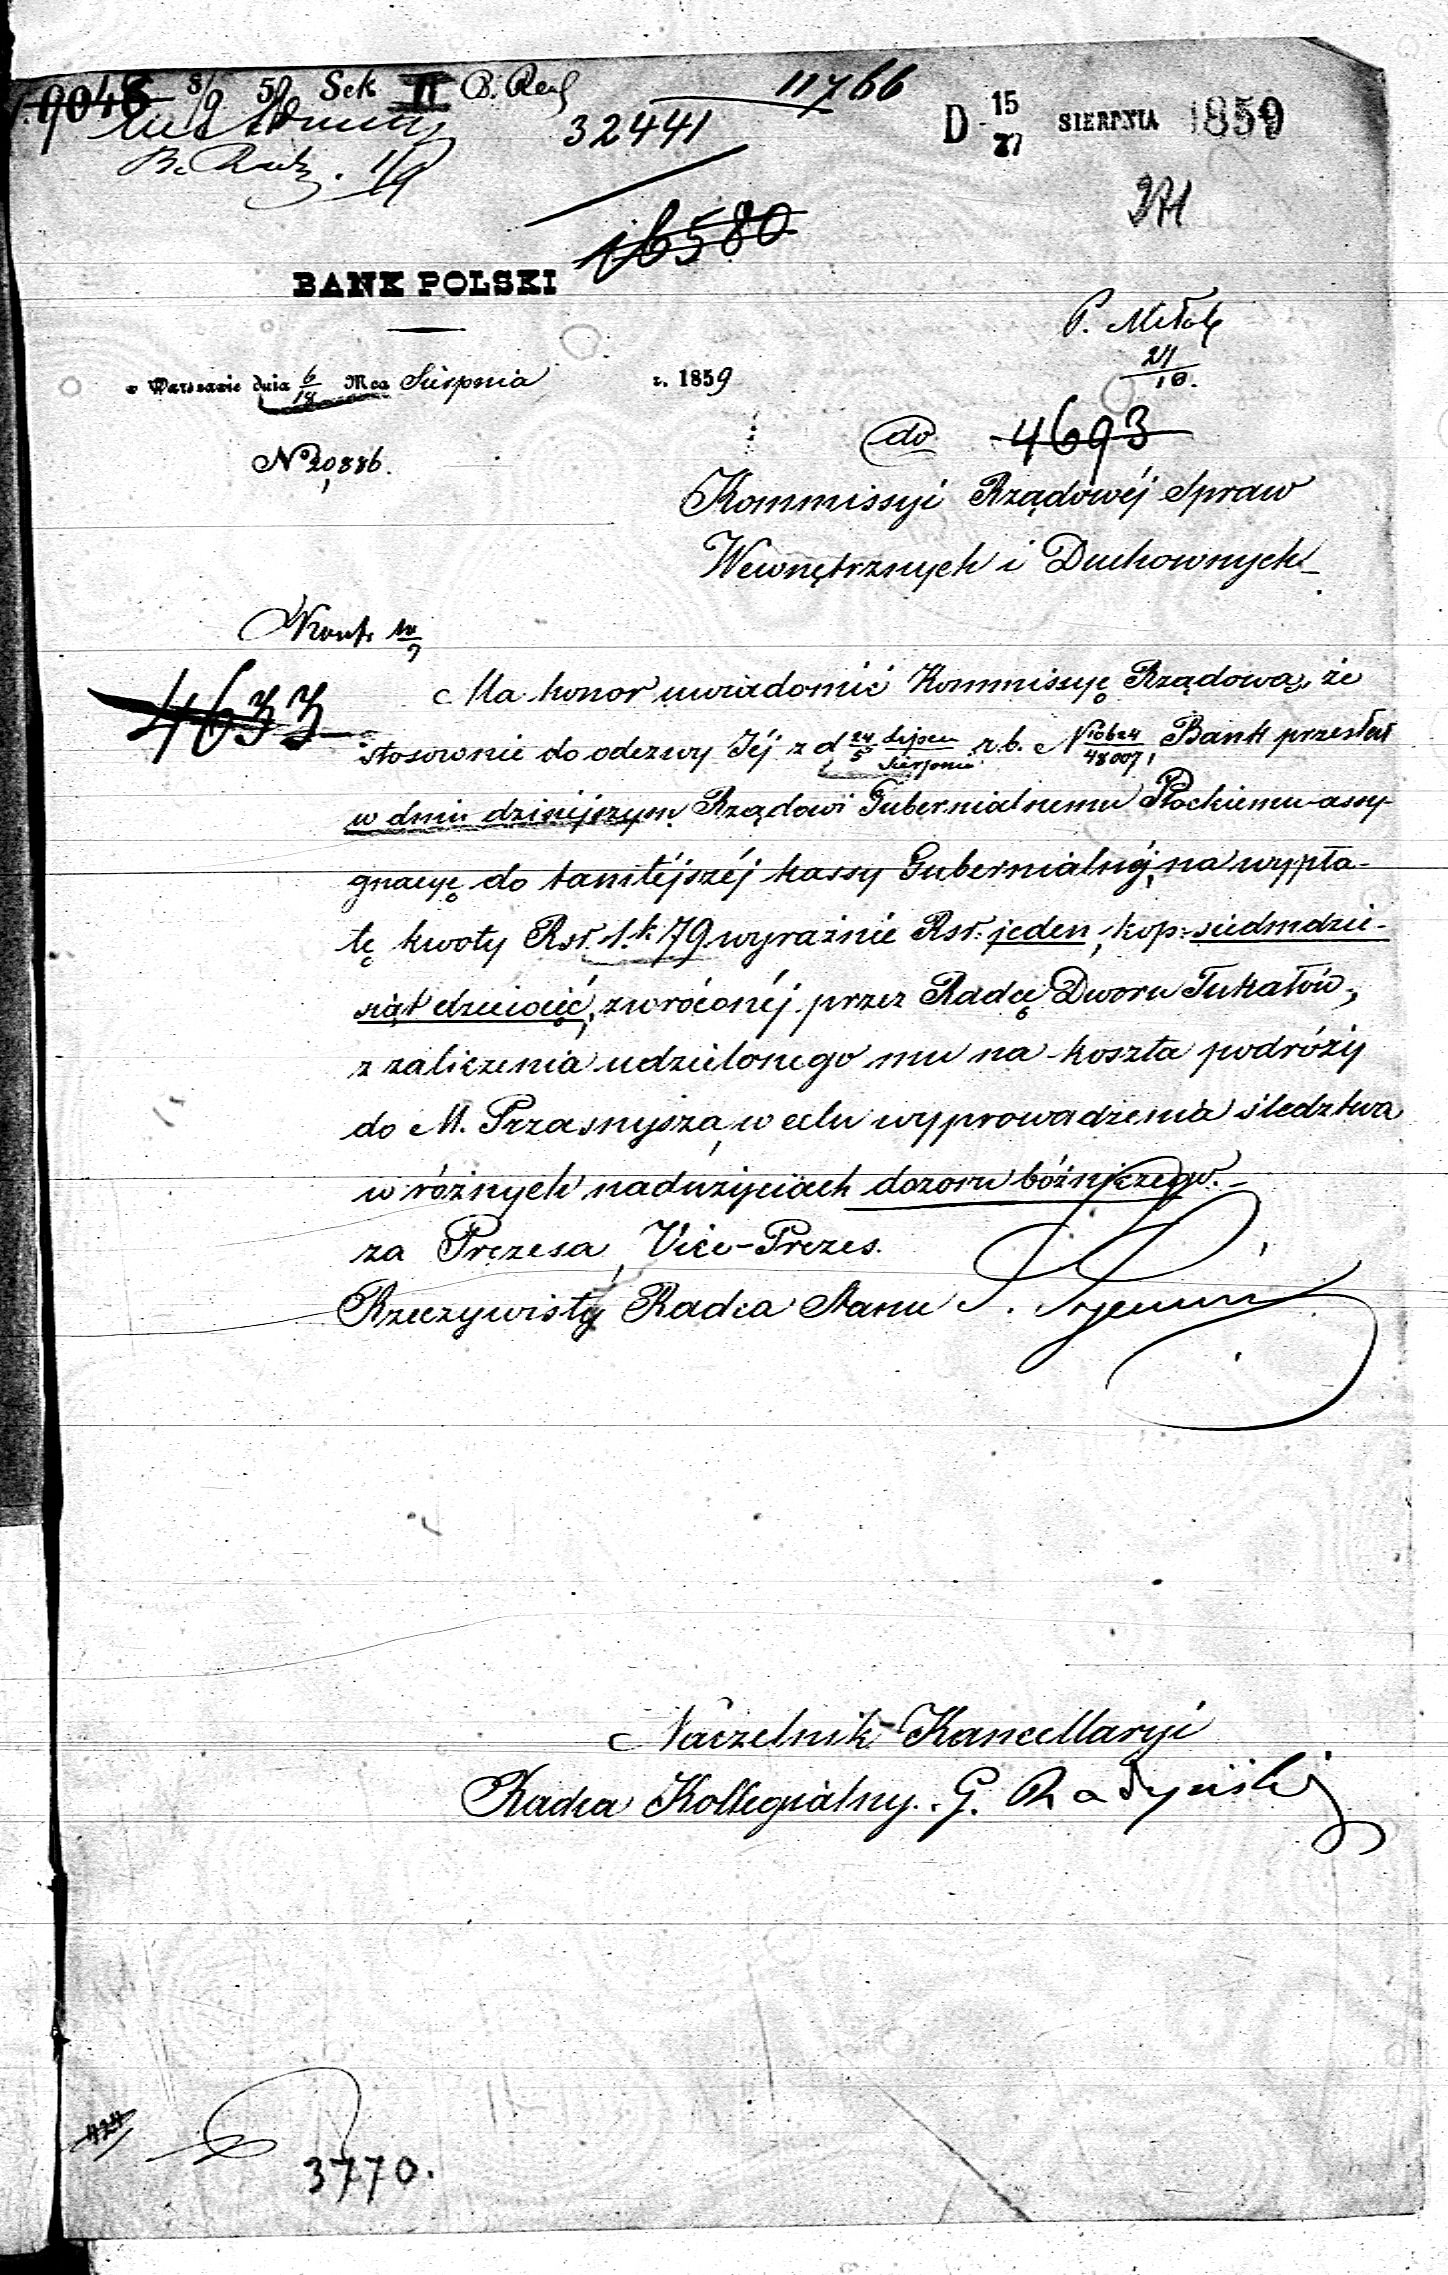 9048 8/9 59 Sek II
11766
32441
D 15/27 SIERPNIA 1859
16580
BANK POLSKI
w Warszawie dnia 6/18 Mca Sierpnia r. 1859
21/10.
do 4693
N 20,886.
Kommissyi Rządowéj Spraw
Wewnętrznych i Duchownych
4633
Ma honor uwiadomić Kommissyę Rządową, że
stosownie do odezwy Jéj z d 24 Lipca/5 Sierpnia r. b. N 10624/48007, Bank przesłał
w dniu dzisiejszym Rządowi Gubernialnemu Płockiemu assy-
gnacyę do tamtéjszéj kassy Gubernialnéj, na wypła-
tę kwoty Rsr. 1. k 79 wyraźnie Rsr. jeden, kop: siedmdzie-
siąt dziewięć, zwróconéj przez Radcę Dworu Tukałło,
z zaliczenia udzielonego mu na koszta podróży
do M. Przasnysza, w celu wyprowadzenia śledztwa
w różnych nadużyciach dozoru bóżniczego.
za Prezesa, Vice-Prezes.
Rzeczywisty Radca Stanu
Naczelnik Kancellaryi
Radca Kollegialny. G. Radyński
424
3770.